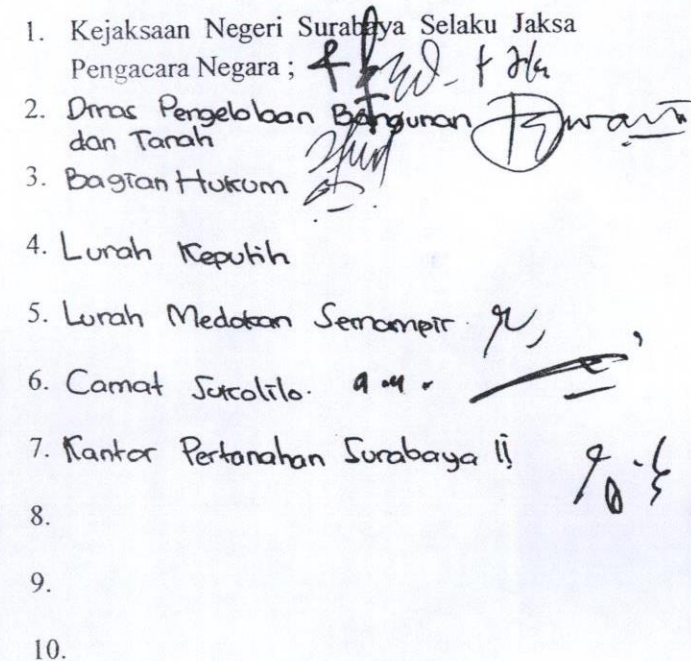 1. Kejaksaan Negeri Surabaya Selaku Jaksa
Pengacara Negara ;
2. Dinas Pengelolaan Bangunan
dan Tanah
3. Bagian Hukum
4. Lurah Keputih
5. Lurah Medokan Semampir
6. Camat Sukolilo. a.n.
7. Kantor Pertanahan Surabaya II
8.
9.
10.